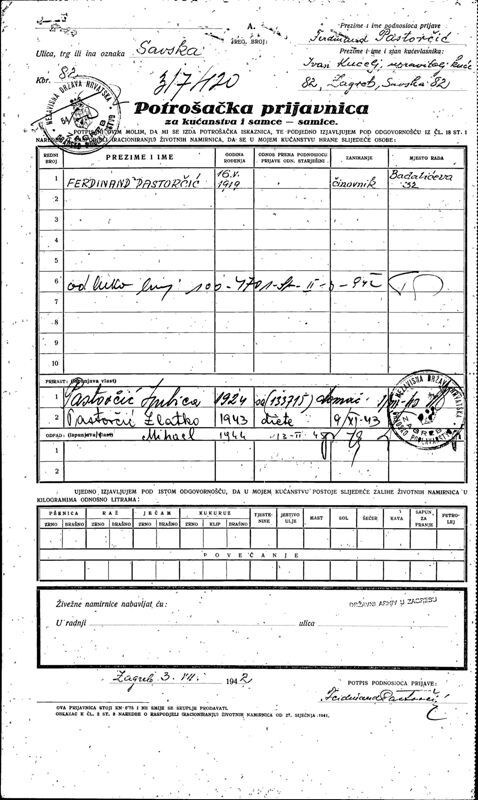 A.
Prezime i ime podnosioca prijave
Ferdinand Pastorčić
Ulica, trg ili ina oznaka Savska
(REG. BROJ:
Prezime i ime i stan kućevlasnika:
Ivan Kucelj, upravitelj kuće
Kbr. 82
82, Zagreb, Savska 82)
3/7/120
NEZAVISNA DRŽAVA HRVATSKA
ZAGREB
Potrošačka prijavnica
za kućanstva i samce — samice.
POTPISANI OVIM MOLIM, DA MI SE IZDA POTROŠAČKA ISKAZNICA, TE PODJEDNO IZJAVLJUJEM POD ODGOVORNOŠĆU IZ ČL. 18 ST. 1
NAREDBE (RACIONIRANJU) ŽIVOTNIH NAMIRNICA, DA SE U MOJEM KUĆANSTVU HRANE SLIJEDEĆE OSOBE:
REDNI BROJ PREZIME I IME GODINA ROĐENJA ODNOS PREMA PODNOSIOCU PRIJAVE ODN. STARJEŠINI ZANIMANJE MJESTO RADA
1 FERDINAND PASTORČIĆ 16.V. 1919 činovnik Badalićeva 32
2
3
4
5
6
7
8
9
10
PRIRAST: (Ispunjava vlast)
1 Pastorčić Ljubica 1924 od (133715)
2 Pastorčić Zlatko 1943 diete 9/XI-43
ODPAD: (Ispunjava vlast) Mihael 1944
1
2
NEZAVISNA DRŽAVA HRVATSKA
ZAGREB
UJEDNO IZJAVLJUJEM POD ISTOM ODGOVORNOŠĆU, DA U MOJEM KUĆANSTVU POSTOJE SLIJEDEĆE ZALIHE ŽIVOTNIH NAMIRNICA U
KILOGRAMIMA ODNOSNO LITRAMA:
PŠENICA RAŽ JEČAM KUKURUZ TJESTENINE JESTIVO ULJE MAST SOL ŠEĆER KAVA SAPUN ZA PRANJE PETROLEJ
ZRNO BRAŠNO ZRNO BRAŠNO ZRNO BRAŠNO ZRNO KLIP BRAŠNO
POVEĆANJE
Živežne namirnice nabavljat ću:
DRŽAVNI ARHIV U ZAGREBU
U radnji ulica
Zagreb 3. VII. 1942
POTPIS PODNOSIOCA PRIJAVE:
Ferdinand Pastorčić
OVA PRIJAVNICA STOJI KN 0'75 I NE SMIJE SE SKUPLJE PRODAVATI.
OBRAZAC K ČL. 2 ST. 2 NAREDBE O RASPODJELI (RACIONIRANJU) ŽIVOTNIH NAMIRNICA OD 27. SIJEČNJA 1941.